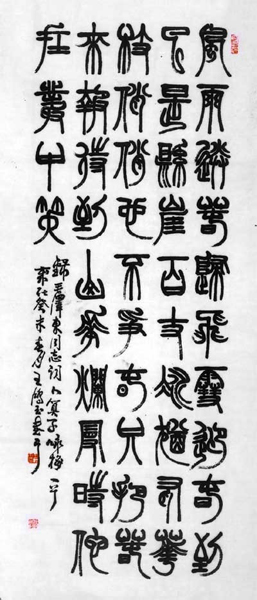 風雨送春歸飛雪迎春到
已是縣崖百丈冰猶有華
枝俏俏也不爭春只把春
來報待到山華爛漫時他
在叢中笑
錄毛澤東同志詞卜算子咏梅一首
歲次癸未春月王